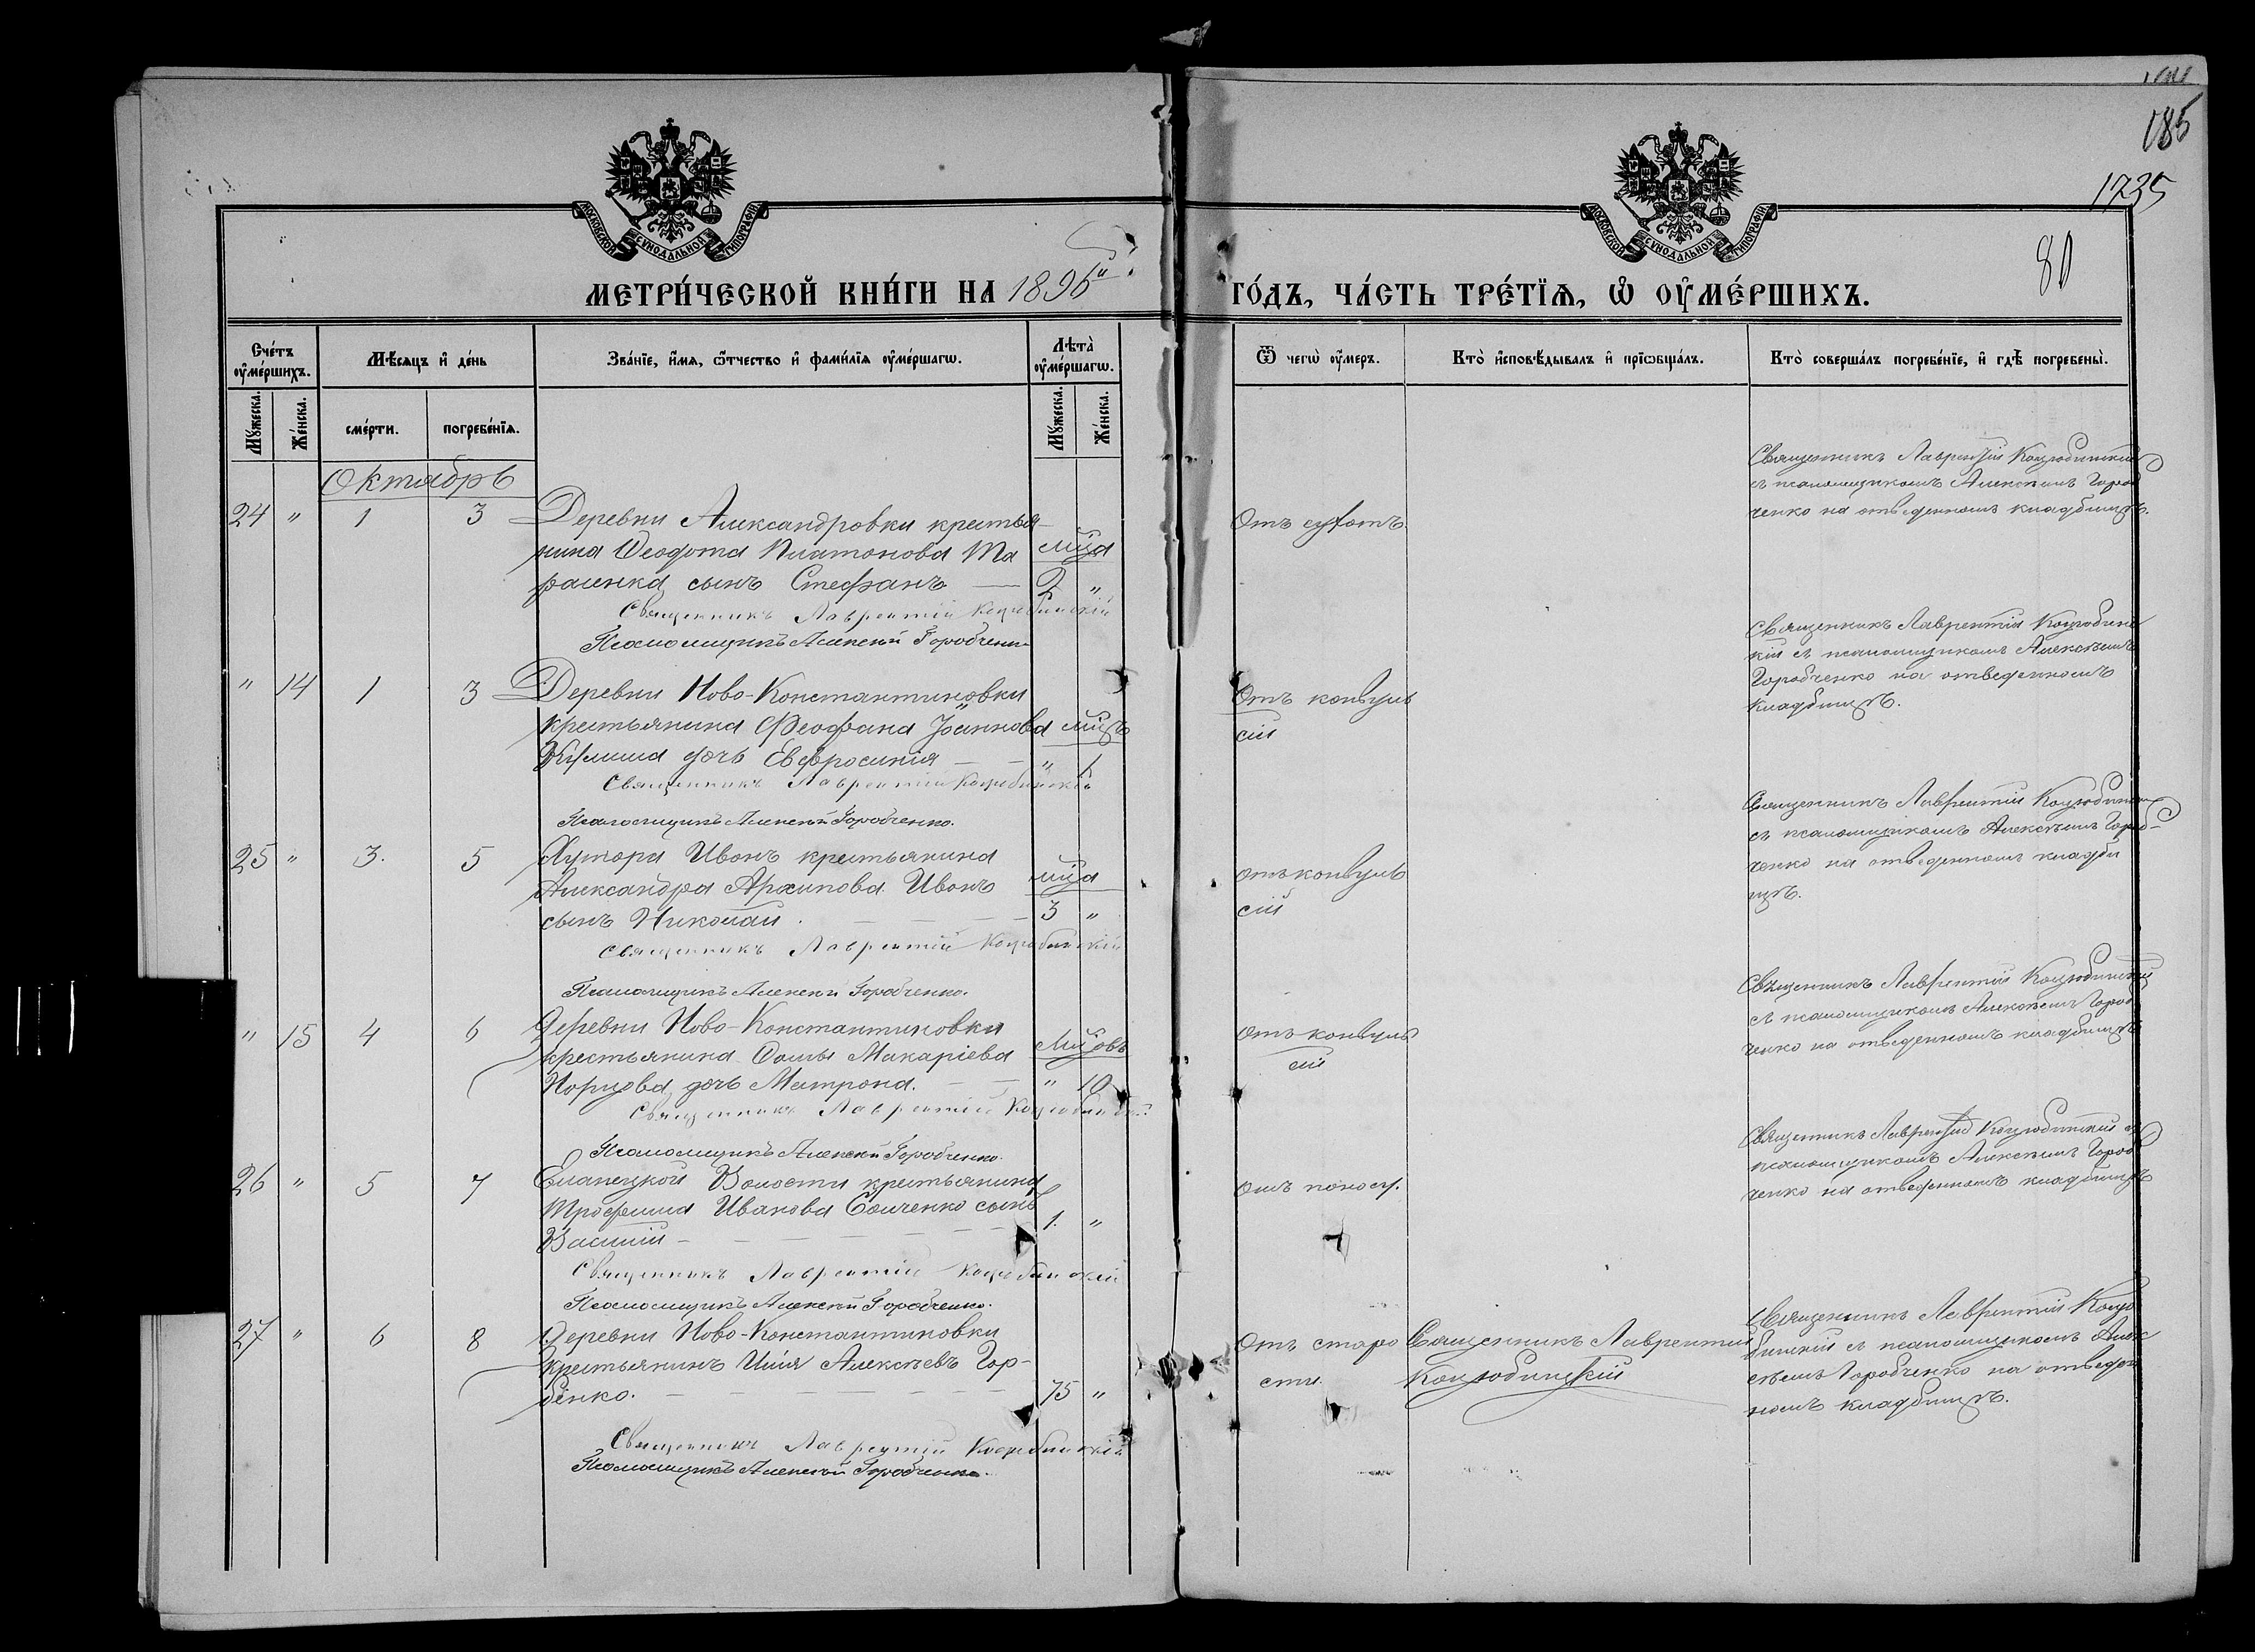 185
1235
80
МОСКОВСКОЙ СУНОДАЛЬНОЙ ТИПОГРАФІИ
МОСКОВСКОЙ СУНОДАЛЬНОЙ ТИПОГРАФІИ
МЕТРИ́ЧЕСКОЙ КНИ́ГИ НА 1896й ГО́ДЪ, ЧА́СТЬ ТРЕ́ТЇѦ, Ѡ҆ ОУ҆МЕ́РШИХЪ.
Счетъ оумершихъ.
Мѣсяцъ и день
Званїе, имя, отчество и фамилїя оумершагѡ.
Лѣта оумершагѡ.
Ѿ чегѡ оумеръ.
Кто исповѣдывалъ и прїобщалъ.
Кто совершалъ погребенїе, и гдѣ погребены.
Мужеска.
Женска.
смерти.
погребенїя.
Мужеска.
Женска.
Октябрь
24 " 1 3 Деревни Александровки крестья-
нина Ѳеодота Платонова Та мца
расенка сынъ Стефанъ — 2 "
Священникъ Лаврентій Коцюбинскій
Псаломщикъ Алексѣй Городченко
Отъ сухотъ.
Священникъ Лаврентій Коцюбинскій
съ псаломщикомъ Алексѣемъ Город
ченко на отведенномъ кладбищѣ.
" 14 1 3 Деревни Ново-Константиновки
крестьянина Феофана Іоаннова мцъ
дочь Евфросинія — " 1
Священникъ Лаврентій Коцюбинскій
Псаломщикъ Алексѣй Городченко.
Отъ конвуль
сій
Священникъ Лаврентій Коцюбинс
кій съ псаломщикомъ Алексѣемъ
Городченко на отведенномъ
кладбищѣ.
25 " 3. 5 Хутора Ивонъ крестьянина
Александра Архипова Ивонъ мца
сынъ Николай. — 3 "
Священникъ Лаврентій Коцюбинскій
Псаломщикъ Алексѣй Городченко.
отъ конвуль
сій
Священникъ Лаврентій Коцюбинскій
съ псаломщикомъ Алексѣемъ Город-
ченко на отведенномъ кладби
щѣ.
" 15 4 6 Деревни Ново-Константиновки
крестьянина Ѳомы Макаріева мцовъ
дочь Матрона. — " 10
Священникъ Лаврентій Коцюбинскій
Псаломщикъ Алексѣй Городченко.
отъ конвуль
сій
Священникъ Лаврентій Коцюбинскій
съ псаломщикомъ Алексѣемъ Город
ченко на отведенномъ кладбищѣ
26 " 5 7 Еланецкой Волости крестьянина
Трофима Иванова сынъ
Василій — 1. "
Священникъ Лаврентій Коцюбинскій
Псаломщикъ Алексѣй Городченко.
отъ поносу.
Священникъ Лаврентій Коцюбинскій съ
псаломщикомъ Алексѣемъ Город
ченко на отведенномъ кладбищѣ
27 " 6 8 Деревни Ново-Константиновки
крестьянинъ Илія Алексѣевъ Гор-
бенко. — 75 "
Священникъ Лаврентій Коцюбинскій
Псаломщикъ Алексѣй Городченко.
Отъ старо
сти.
Священникъ Лаврентій
Коцюбинскій
Священникъ Лаврентій Коцю
бинскій съ псаломщикомъ Алек
сѣемъ Городченко на отведен
номъ кладбищѣ.